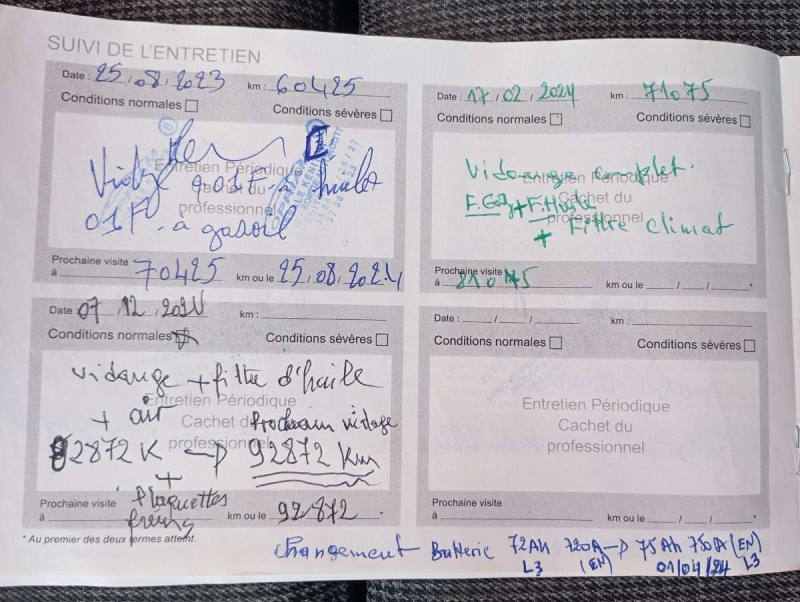 SUIVI DE L'ENTRETIEN
Date : 25.08.2023 km : 60425
Conditions normales
Conditions sévères
Entretien Périodique
Cachet du
professionnel
huile
01 F. à gasoil
Prochaine visite
à 70425 km ou le 25.08.2024
Date : 17/02/2024 km : 71075
Conditions normales
Conditions sévères
Entretien Périodique
Cachet du
professionnel
Vidange complet.
+ F. Huile
+ Filtre Climat
Prochaine visite
à 81075 km ou le / / *
Date 07 12 2024 km :
Conditions normales
Conditions sévères
Entretien Périodique
Cachet du
professionnel
vidange + filtre d'huile
+ air Prochain vidage
82872 K → 92872 Km
+
plaquettes
freins
Prochaine visite
à km ou le 92872 *
Date : / / km :
Conditions normales
Conditions sévères
Entretien Périodique
Cachet du
professionnel
Prochaine visite
à km ou le / / *
* Au premier des deux termes atteint.
changement Batterie 72Ah 720A → 75Ah 750A (EN)
L3 (EN) 01/04/24 L3